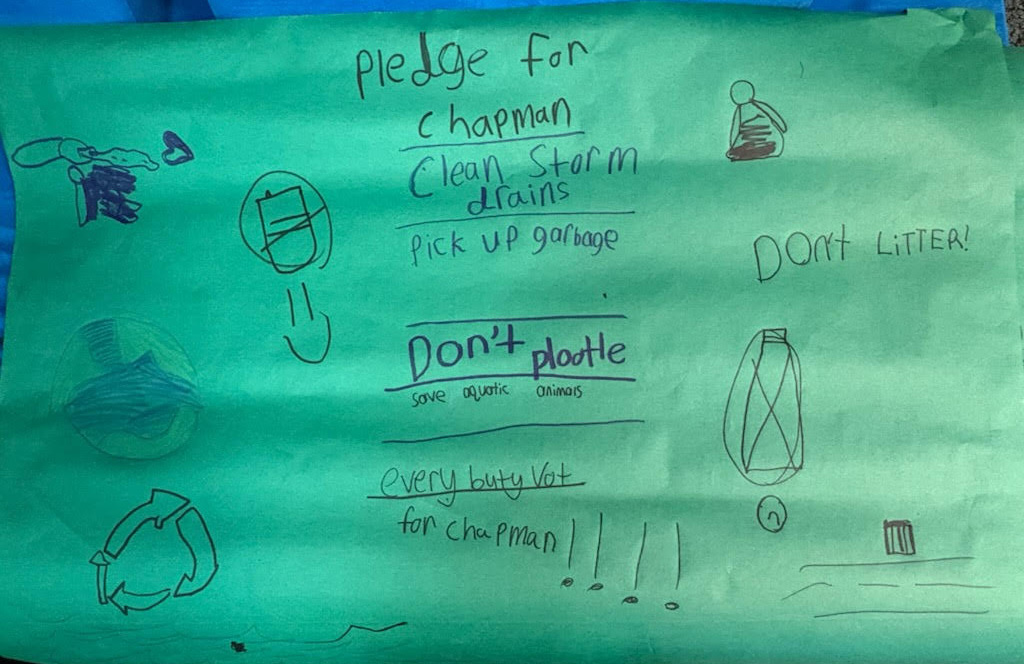 Pledge for
Chapman
Clean Storm
drains
Pick up garbage
DOn't LiTTER!
Don't plootle
save aquatic animals
every buty Vot
for chapman!!!!